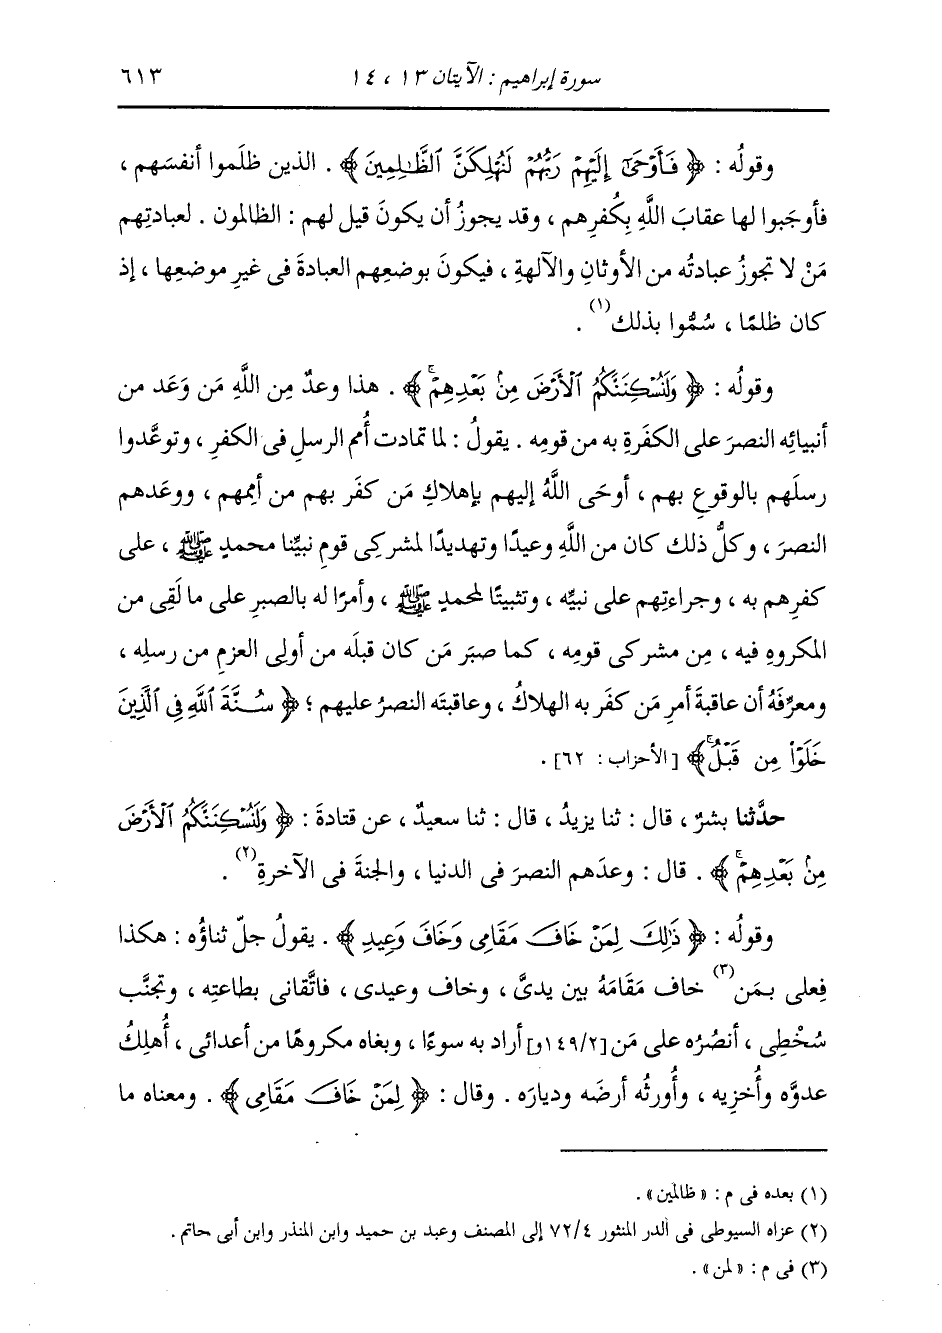 سورة إبراهيم : الآيتان ١٣ ، ١٤
٦١٣
وقولُه : ﴿ فَأَوْحَىٰٓ إِلَيْهِمْ رَبُّهُمْ لَنُهْلِكَنَّ ٱلظَّٰلِمِينَ ﴾ . الذين ظلَموا أنفسَهم ،
فأوجَبوا لها عقابَ اللَّهِ بِكُفرِهم ، وقد يجوزُ أن يكونَ قيل لهم : الظالمون . لعبادتِهم
مَنْ لا تجوزُ عبادتُه من الأوثانِ والآلهةِ ، فيكونَ بوضعِهم العبادةَ فى غيرِ موضعِها ، إذ
كان ظلمًا ، سُمُّوا بذلك(١) .
وقولُه : ﴿ وَلَنُسْكِنَنَّكُمُ ٱلْأَرْضَ مِنۢ بَعْدِهِمْۚ ﴾ . هذا وعدٌ مِن اللَّهِ مَن وَعَد من
أنبيائِه النصرَ على الكفَرةِ به من قومِه . يقولُ : لما تمادت أُمم الرسلِ فى الكفرِ ، وتوعَّدوا
رسلَهم بالوقوعِ بهم ، أوحَى اللَّهُ إليهم بإهلاكِ مَن كفَر بهم من أممِهم ، ووعَدهم
النصرَ ، وكلُّ ذلك كان من اللَّهِ وعيدًا وتهديدًا لمشركِى قومِ نبيِّنا محمدٍ ﷺ ، على
كفرِهم به ، وجراءتِهم على نبيِّه ، وتثبيتًا لمحمدٍ ﷺ ، وأمرًا له بالصبرِ على ما لَقِى من
المكروهِ فيه ، مِن مشركى قومِه ، كما صبَر مَن كان قبلَه من أولِى العزمِ من رسلِه ،
ومعرِّفَهُ أن عاقبةَ أمرِ مَن كفَر به الهلاكُ ، وعاقبتَه النصرُ عليهم ؛ ﴿ سُنَّةَ ٱللَّهِ فِى ٱلَّذِينَ
خَلَوْا۟ مِن قَبْلُۚ ﴾ [ الأحزاب : ٦٢] .
حدَّثنا بشرٌ ، قال : ثنا يزيدُ ، قال : ثنا سعيدٌ ، عن قتادةَ : ﴿ وَلَنُسْكِنَنَّكُمُ ٱلْأَرْضَ
مِنۢ بَعْدِهِمْۚ ﴾ . قال : وعدَهم النصرَ فى الدنيا ، والجنةَ فى الآخرةِ(٢) .
وقولُه : ﴿ ذَٰلِكَ لِمَنْ خَافَ مَقَامِى وَخَافَ وَعِيدِ ﴾ . يقولُ جلّ ثناؤُه : هكذا
فِعلى بمَن(٣) خاف مَقَامَهُ بين يدىَّ ، وخاف وعيدى ، فاتَّقانى بطاعتِه ، وتجنَّب
سُخْطِى ، أنصُرُه على مَن [١٤٩/٢و] أراد به سوءًا ، وبغاه مكروهًا من أعدائى ، أُهلِكُ
عدوَّه وأُخزِيه ، وأُورثُه أرضَه وديارَه . وقال : ﴿ لِمَنْ خَافَ مَقَامِى ﴾ . ومعناه ما
(١) بعده فى م : « ظالمين » .
(٢) عزاه السيوطى فى الدر المنثور ٧٢/٤ إلى المصنف وعبد بن حميد وابن المنذر وابن أبى حاتم .
(٣) فى م : « لمن » .